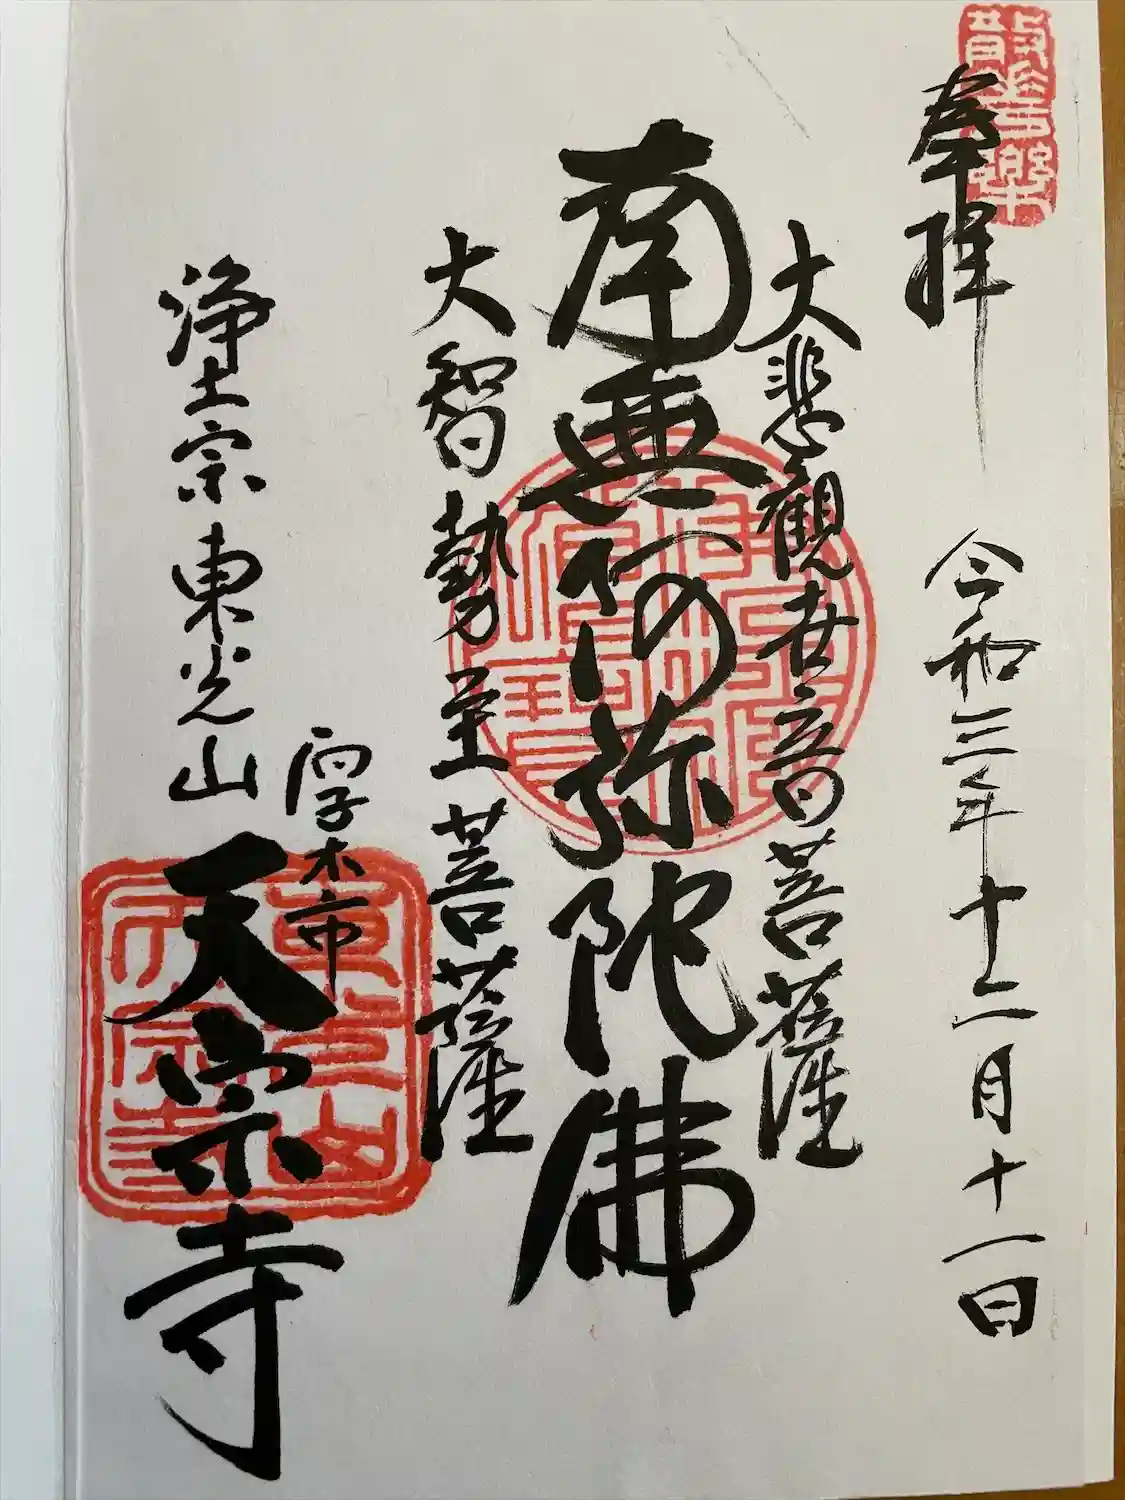 奉拝
令和三年十二月十一日
大悲觀世音菩薩
南無阿弥陀佛
大智勢至菩薩
厚木市
浄土宗東光山天宗寺
東光山天宗寺